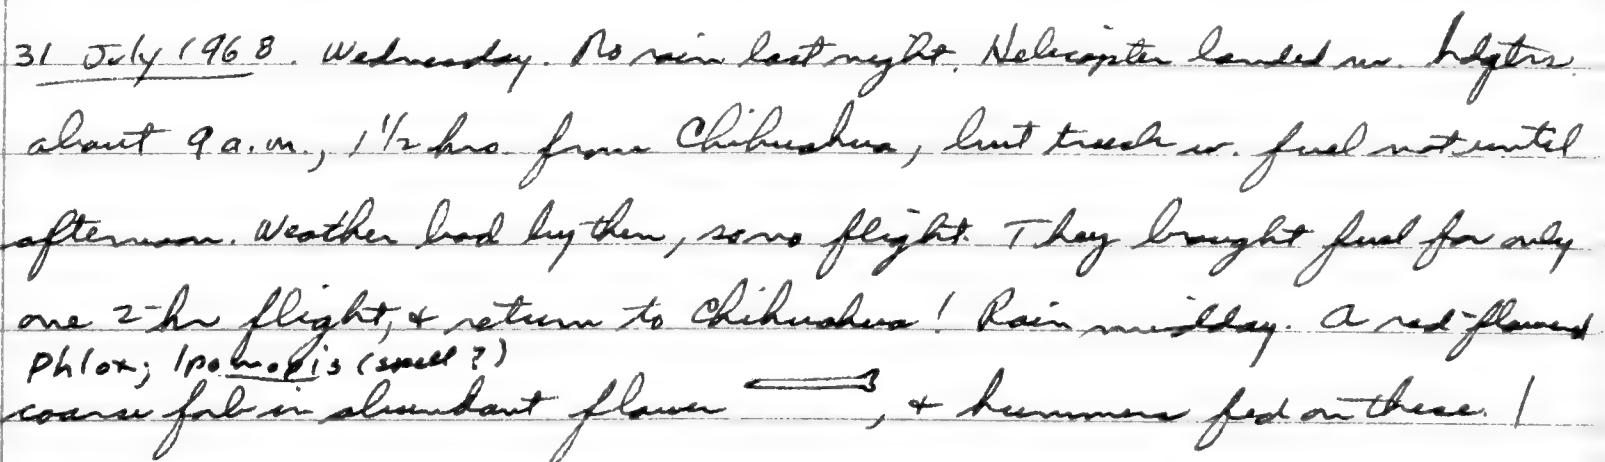 31 July 1968. Wednesday. No rain last night. Helicopter landed nr. hdqtrs.
about 9 a.m., 1 1/2 hrs. from Chihuahua, but truck w. fuel not until
afternoon. Weather bad by then, so no flight. They brought fuel for only
one 2-hr flight, & return to Chihuahua! Rain midday. A red-flowered
Phlox; Ipomopis (spell?)
coarse forb in abundant flower , & hummers fed on these. /